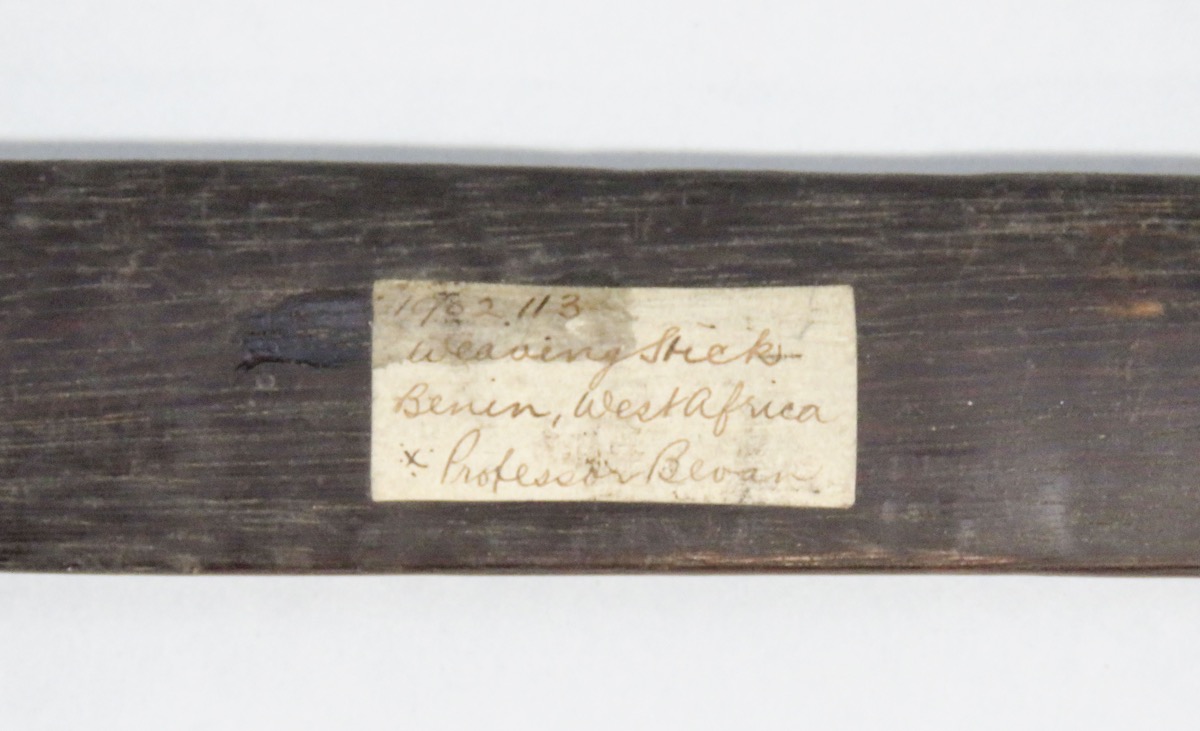 1982.113
Weaving Stick
Benin, West Africa
x Professor Bevan